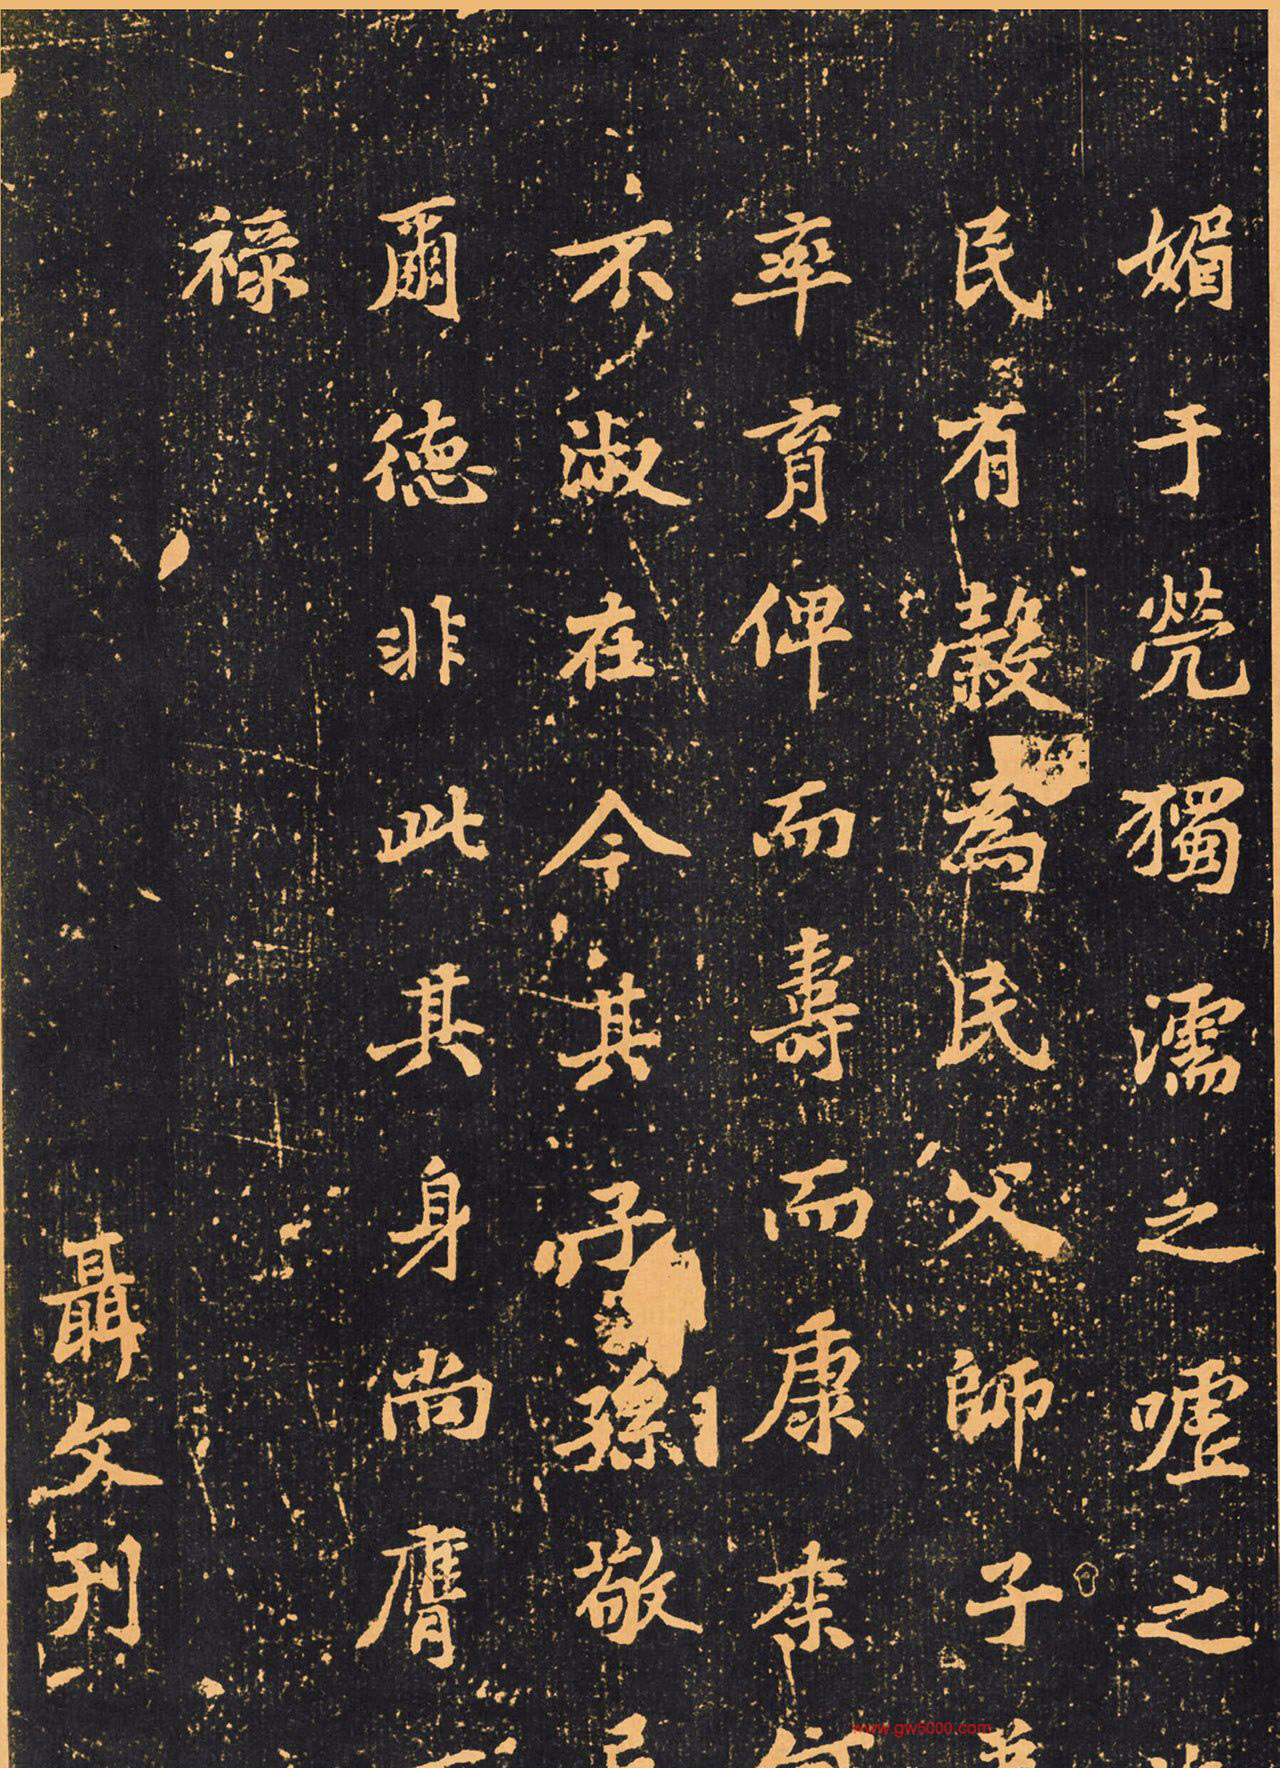 媚于煢獨濡之嘘之
民有穀為民父師子
率育俾而壽而康来何
不淑在今其子孫敬
爾德非此其身尚膺
祿
聶文刊
www.gw5000.com